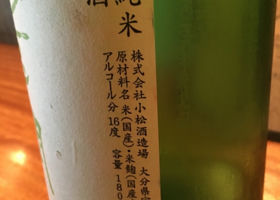 酒
純米
株式会社小松酒造場 大分県宇
原材料名 米(国産)・米麹(国産
アルコール分 16度 容量 180